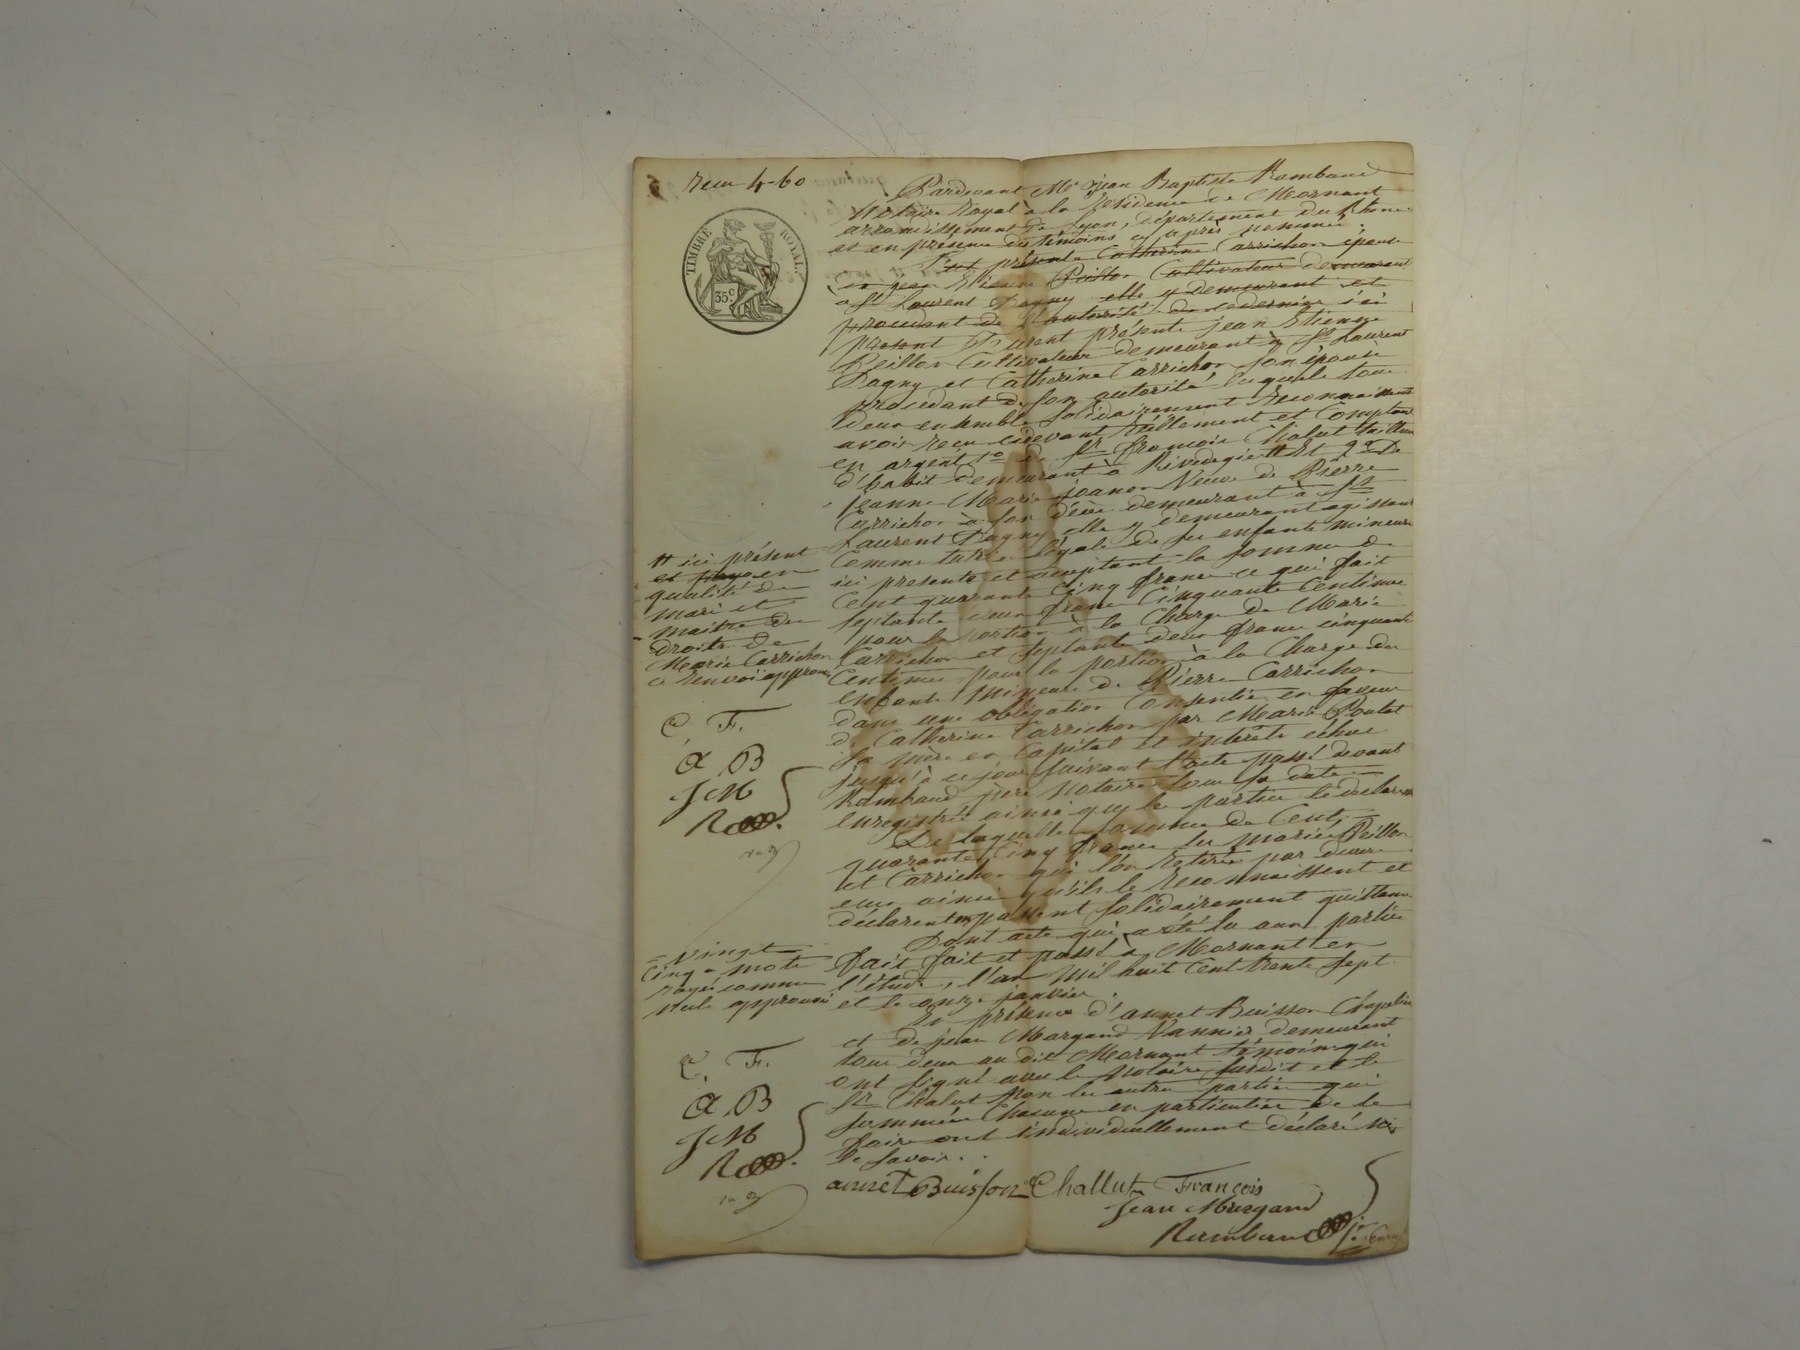 recu 4-60
TIMBRE ROYAL.
35 c.
Pardevant Me jean Baptiste Rambaud
Notaire Royal à la Résidence de Mornant
arrondissement de Lyon, département du Rhône
et en présence des témoins cy après nommés,
Fut présente Catherine Carrichon épouse
de jean Etienne Peillon Cultivateur demeurant
a St Laurent Dagny elle y demeurant et
procedant de l'autorité de ce dernier ici
présent Furent présents jean Etienne
Peillon Cultivateur demeurant à St Laurent
Dagny et Catherine Carrichon son épouse
procedant de son autorité lesquels tous
deux ensemble solidairement Reconnaissent
avoir recu cidevant Réellement et Comptant
en argent 1o de Sr françois Chalut tailleur
d'habit demeurant à Rivedegier # Et 2o De
jeanne Marie joanon Veuve de Pierre
Carrichon à son décès demeurant à St
Laurent Dagny elle y demeurant agissant
Comme tutrice légale de ses enfants mineurs
ici présente et acceptant la somme de
Cent quarante Cinq francs ce qui fait
septante deux francs Cinquante Centimes
pour la portion à la Charge de Marie
Carrichon et septante deux francs cinquante
Centimes pour la portion à la Charge des
enfants Mineurs de Pierre Carrichon
dans une obligation Consentie en faveur
de Catherine Carrichon par Marie Poulat
sa mère en Capital et intérêts échus
jusqu'à ce jour suivant l'acte passé devant
Rambaud père Notaire sous sa date
Enregistrée ainsi que les parties le déclarent
De laquelle somme de Cent
quarante Cinq francs les mariés Peillon
et Carrichon qui l'on retirée par devers
eux ainsi qu'ils le Reconnaissent et
déclarent en passent solidairement quittance
Dont acte qui a été lu aux parties
Fait fait et passé à Mornant en
l'étude, l'an Mil huit Cent trente sept
et le onze janvier.
En présence d'annet Buisson Chapelier
et de jean Margand Vannier demeurant
tous deux au dit Mornant témoins qui
ont signé avec le Notaire susdit et le
Sr Chalut Non les autres parties qui
sommées Chacune en particulier de le
faire ont individuellement déclaré ne
le savoir.
# ici présent
et payant en
qualité de
mari et
maitre des
droits de
Marie Carrichon
ce renvoi approuvé
C. F.
A B
JM
R
Vingt
Cinq mots
rayés comme
nuls approuvés
C. F.
A B
JM
R
annet Buisson Challut François
Jean Margand
Rambaud